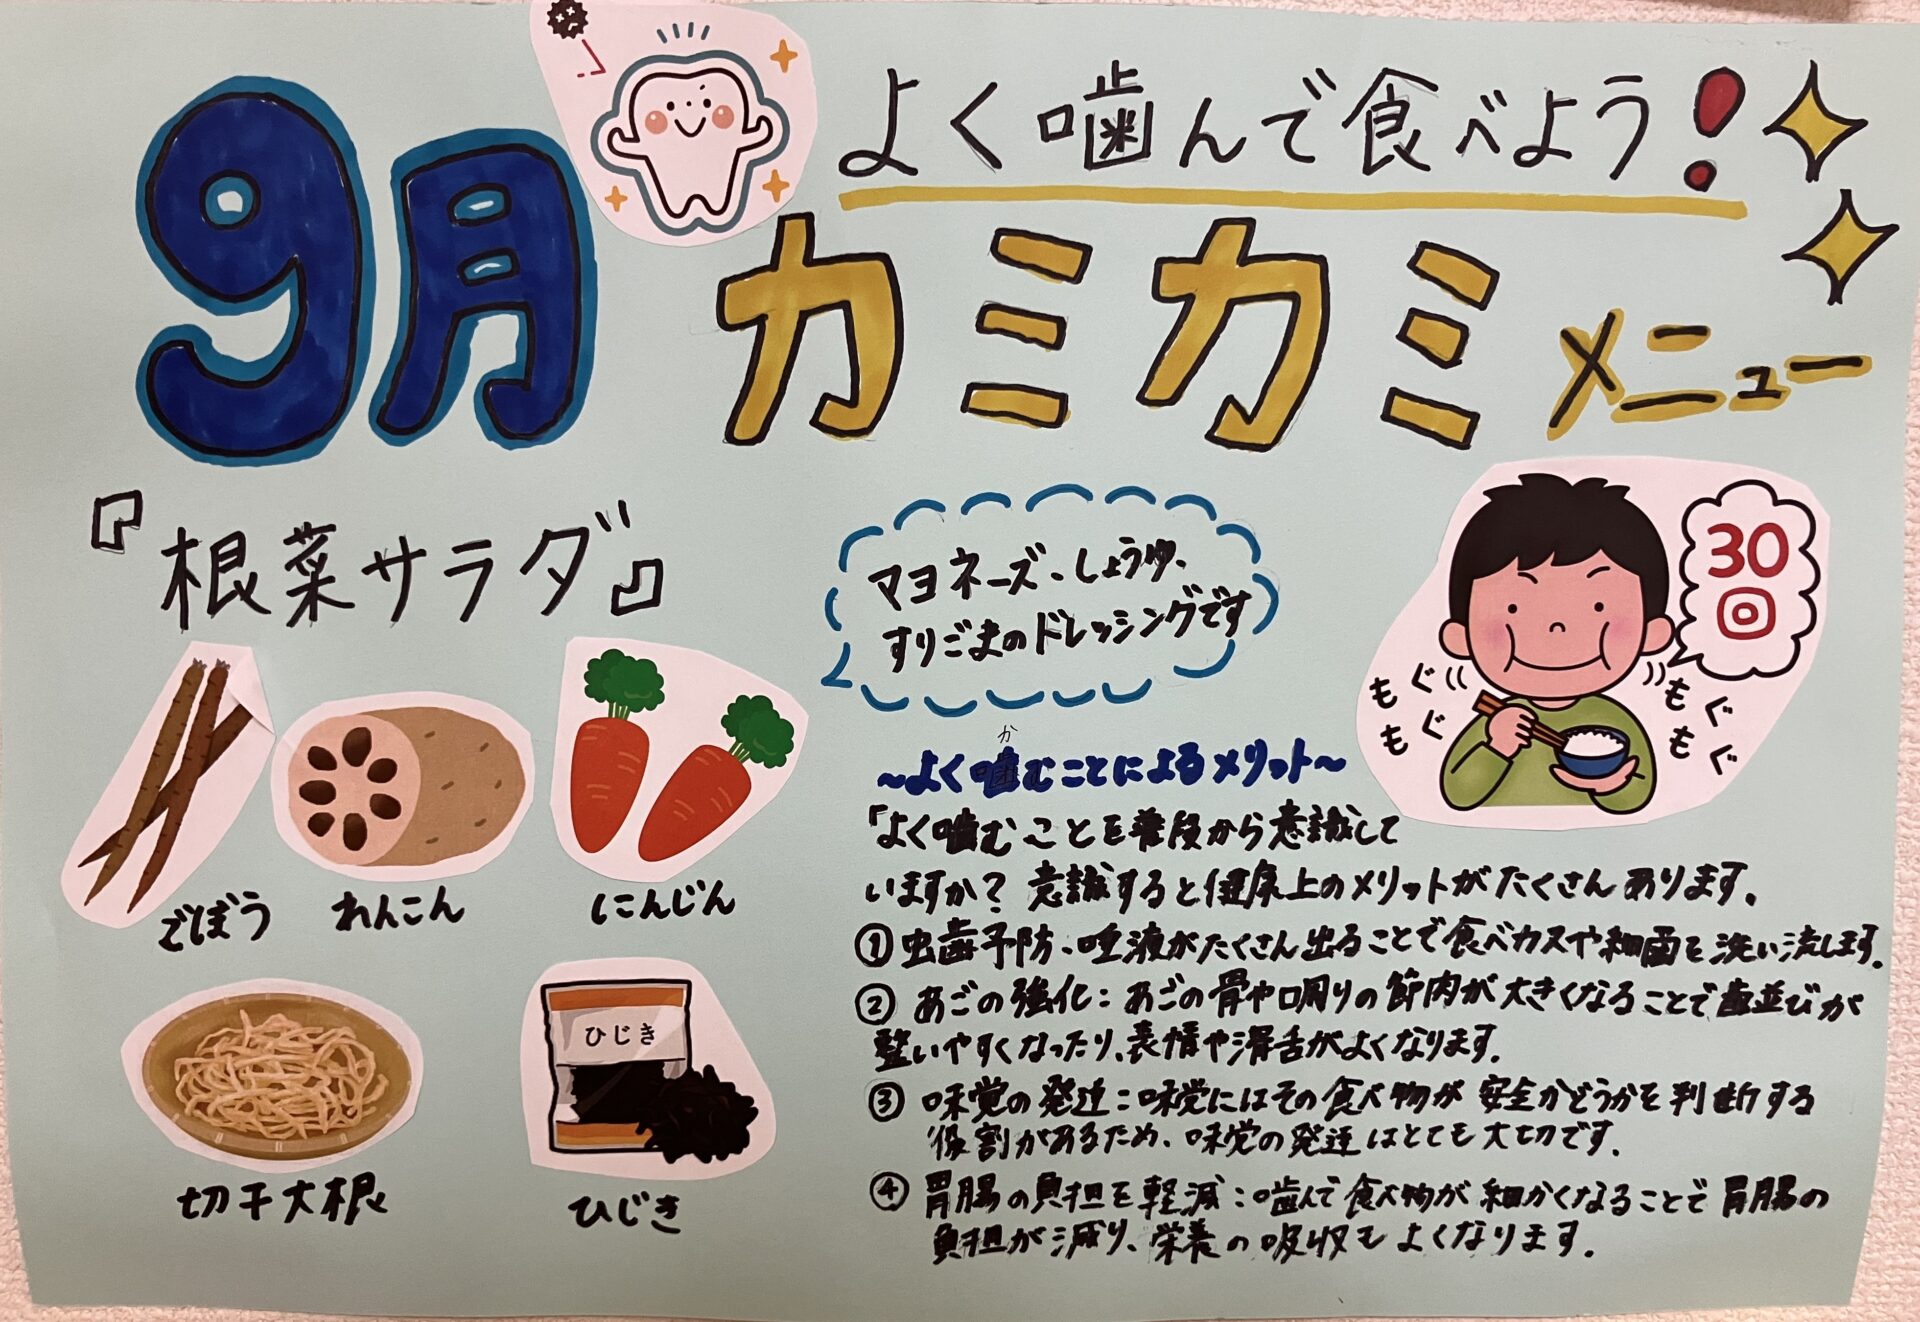 9月
よく噛んで食べよう!
カミカミメニュー
『根菜サラダ』
マヨネーズ、しょうゆ、
すりごまのドレッシングです
30
回
もぐ
もぐ
もぐ
もぐ
ごぼう
れんこん
にんじん
ひじき
切干大根
ひじき
か
~よく噛むことによるメリット~
「よく噛むことを普段から意識して
いますか?意識すると健康上のメリットがたくさんあります。
①虫歯予防、唾液がたくさん出ることで食べカスや細菌を洗い流します。
②あごの強化:あごの骨や周りの筋肉が大きくなることで歯並びが
整いやすくなったり、表情や滑舌がよくなります。
③味覚の発達:味覚にはその食べ物が安全かどうかを判断する
役割があるため、味覚の発達はとても大切です。
④胃腸の負担を軽減:噛んで食べ物が細かくなることで胃腸の
負担が減り、栄養の吸収もよくなります。